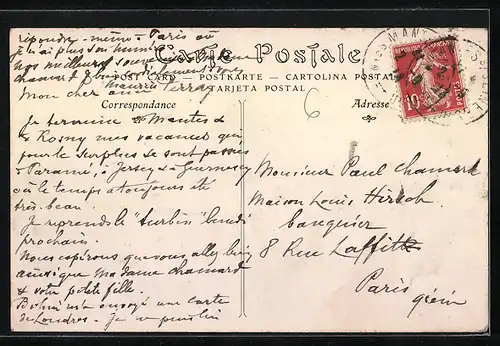 répondre - même - Paris où
je n'ai plus son numéro
nos meilleurs souvenirs Madame
chamard & bons
Maurice Terray
Carte Postale
POST CARD — POSTKARTE — CARTOLINA POSTALE
TARJETA POSTAL
Mon cher ami
Correspondance
Adresse
6
REPUBLIQUE FRANÇAISE
10
POSTES
Je termine à Mantes &
Rosny mes vacances qui
pour le surplus se sont passées
à Paramé, à Jersey & Guernesey
où le temps a toujours été
très beau.
Je reprends le "turbin" lundi
prochain.
Nous espérons que vous allez bien
ainsi que Madame chamard
& votre petite fille.
envoyé une carte
de Londres - Je
Monsieur Paul Chamard
Maison Louis Hirsch
banquier
8 Rue Laffitte
Paris